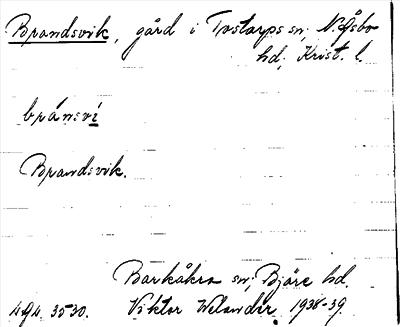 Brandsvik, gård i Tostarps sn, N. Åsbo
hd, Krist. l.
bránsvi
Brandsvik.
Barkåkra sn, Bjäre hd,
Viktor Welander. 1938-39.
494. 3530.